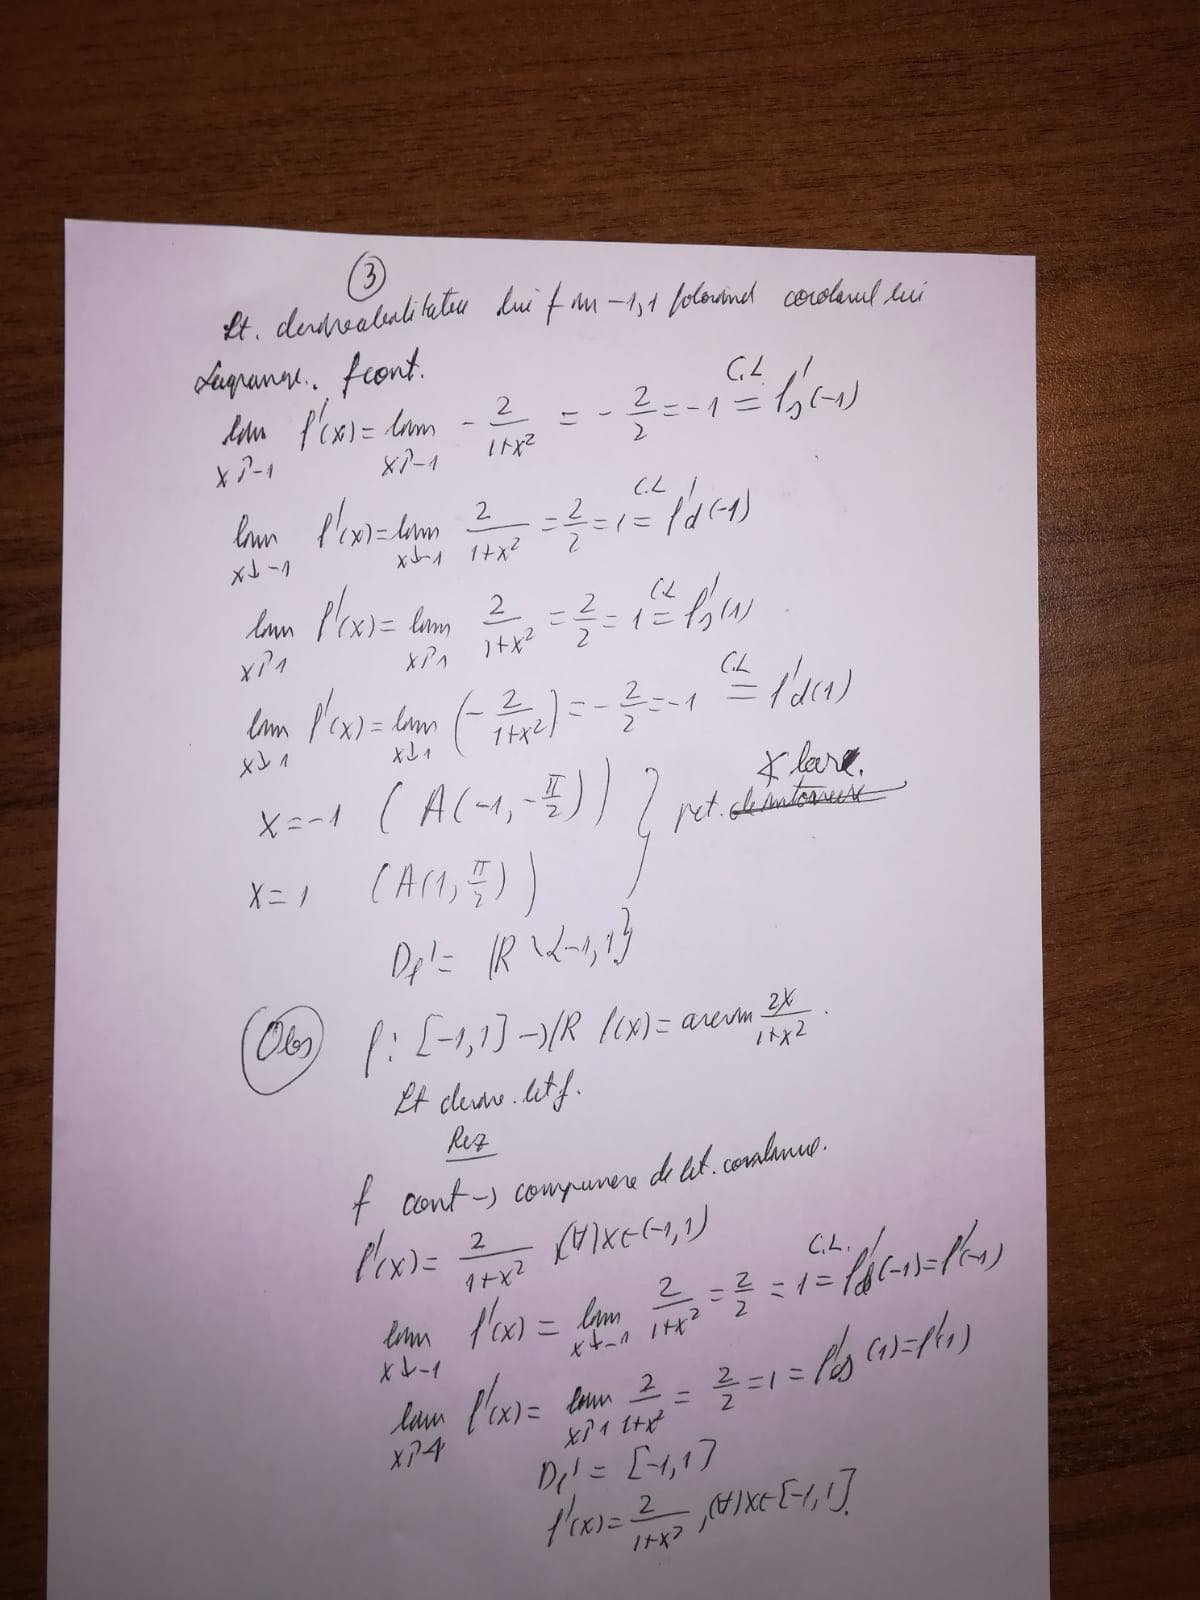 ③
St. derivabilitatea lui f în -1,1 folosind corolarul lui
Lagrange. f cont.
lim x↑-1 f'(x) = lim x↑-1 - 2/(1+x²) = - 2/2 = -1 =(C.L.) f's(-1)
lim x↓-1 f'(x) = lim x↓-1 2/(1+x²) = 2/2 = 1 =(C.L) f'd(-1)
lim x↑1 f'(x) = lim x↑1 2/(1+x²) = 2/2 = 1 =(C.L) f's(1)
lim x↓1 f'(x) = lim x↓1 (- 2/(1+x²)) = - 2/2 = -1 =(C.L) f'd(1)
x=-1 (A(-1, -π/2)) } pct.
x=1 (A(1, π/2))
Df' = ℝ \ {-1,1}
Obs f: [-1,1] → ℝ f(x) = arcsin 2x/(1+x²).
St deriv. lui f.
Rez
f cont → compunere de fct. continue.
f'(x) = 2/(1+x²), (∀)x∈(-1,1)
lim x↓-1 f'(x) = lim x↓-1 2/(1+x²) = 2/2 = 1 =(C.L.) f'd(-1) = f'(-1)
lim x↑1 f'(x) = lim x↑1 2/(1+x²) = 2/2 = 1 = f's(1) = f'(1)
Df' = [-1,1]
f'(x) = 2/(1+x²), (∀)x∈[-1,1].